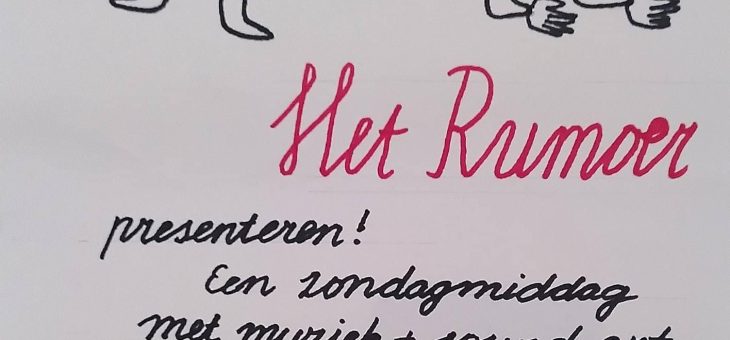 Het Rumoer
presenteren!
Een zondagmiddag
met muziek + sound art